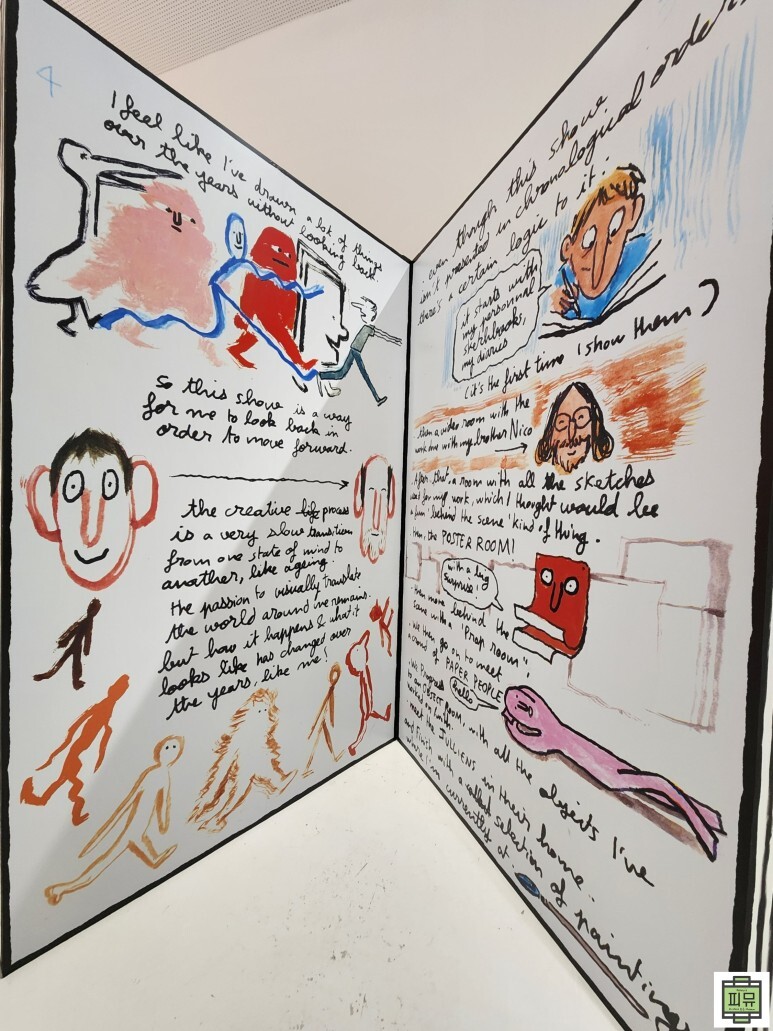 I feel like I've drawn a lot of things
over the years without looking back
So this show is a way
for me to look back in
order to move forward.
the creative life process
is a very slow transition
from one state of mind to
another, like ageing.
the passion to visually translate
the world around me remains.
but how it happens & what it
looks like has changed over
the years, like me!
even though this show
isn't presented in chronological order,
there's a certain logic to it.
it starts with
my personnal
sketchbooks,
my diaries
(it's the first time I show them)
then a video room with the
work done with my brother Nico
After that, a room with all the sketches
used for my work, which I thought would be
a fun 'behind the scene' kind of thing.
then, the POSTER ROOM!
with a big
surprise.
then more behind the
scene with a "Prop room".
we then go on to meet
a crowd of PAPER PEOPLE
hello
we Progress
to an OBJECT ROOM, with all the objects I've
worked on with.
meet the JULLIENS in their home.
and finish with a selection of paintings
where I'm currently at.
피뮤